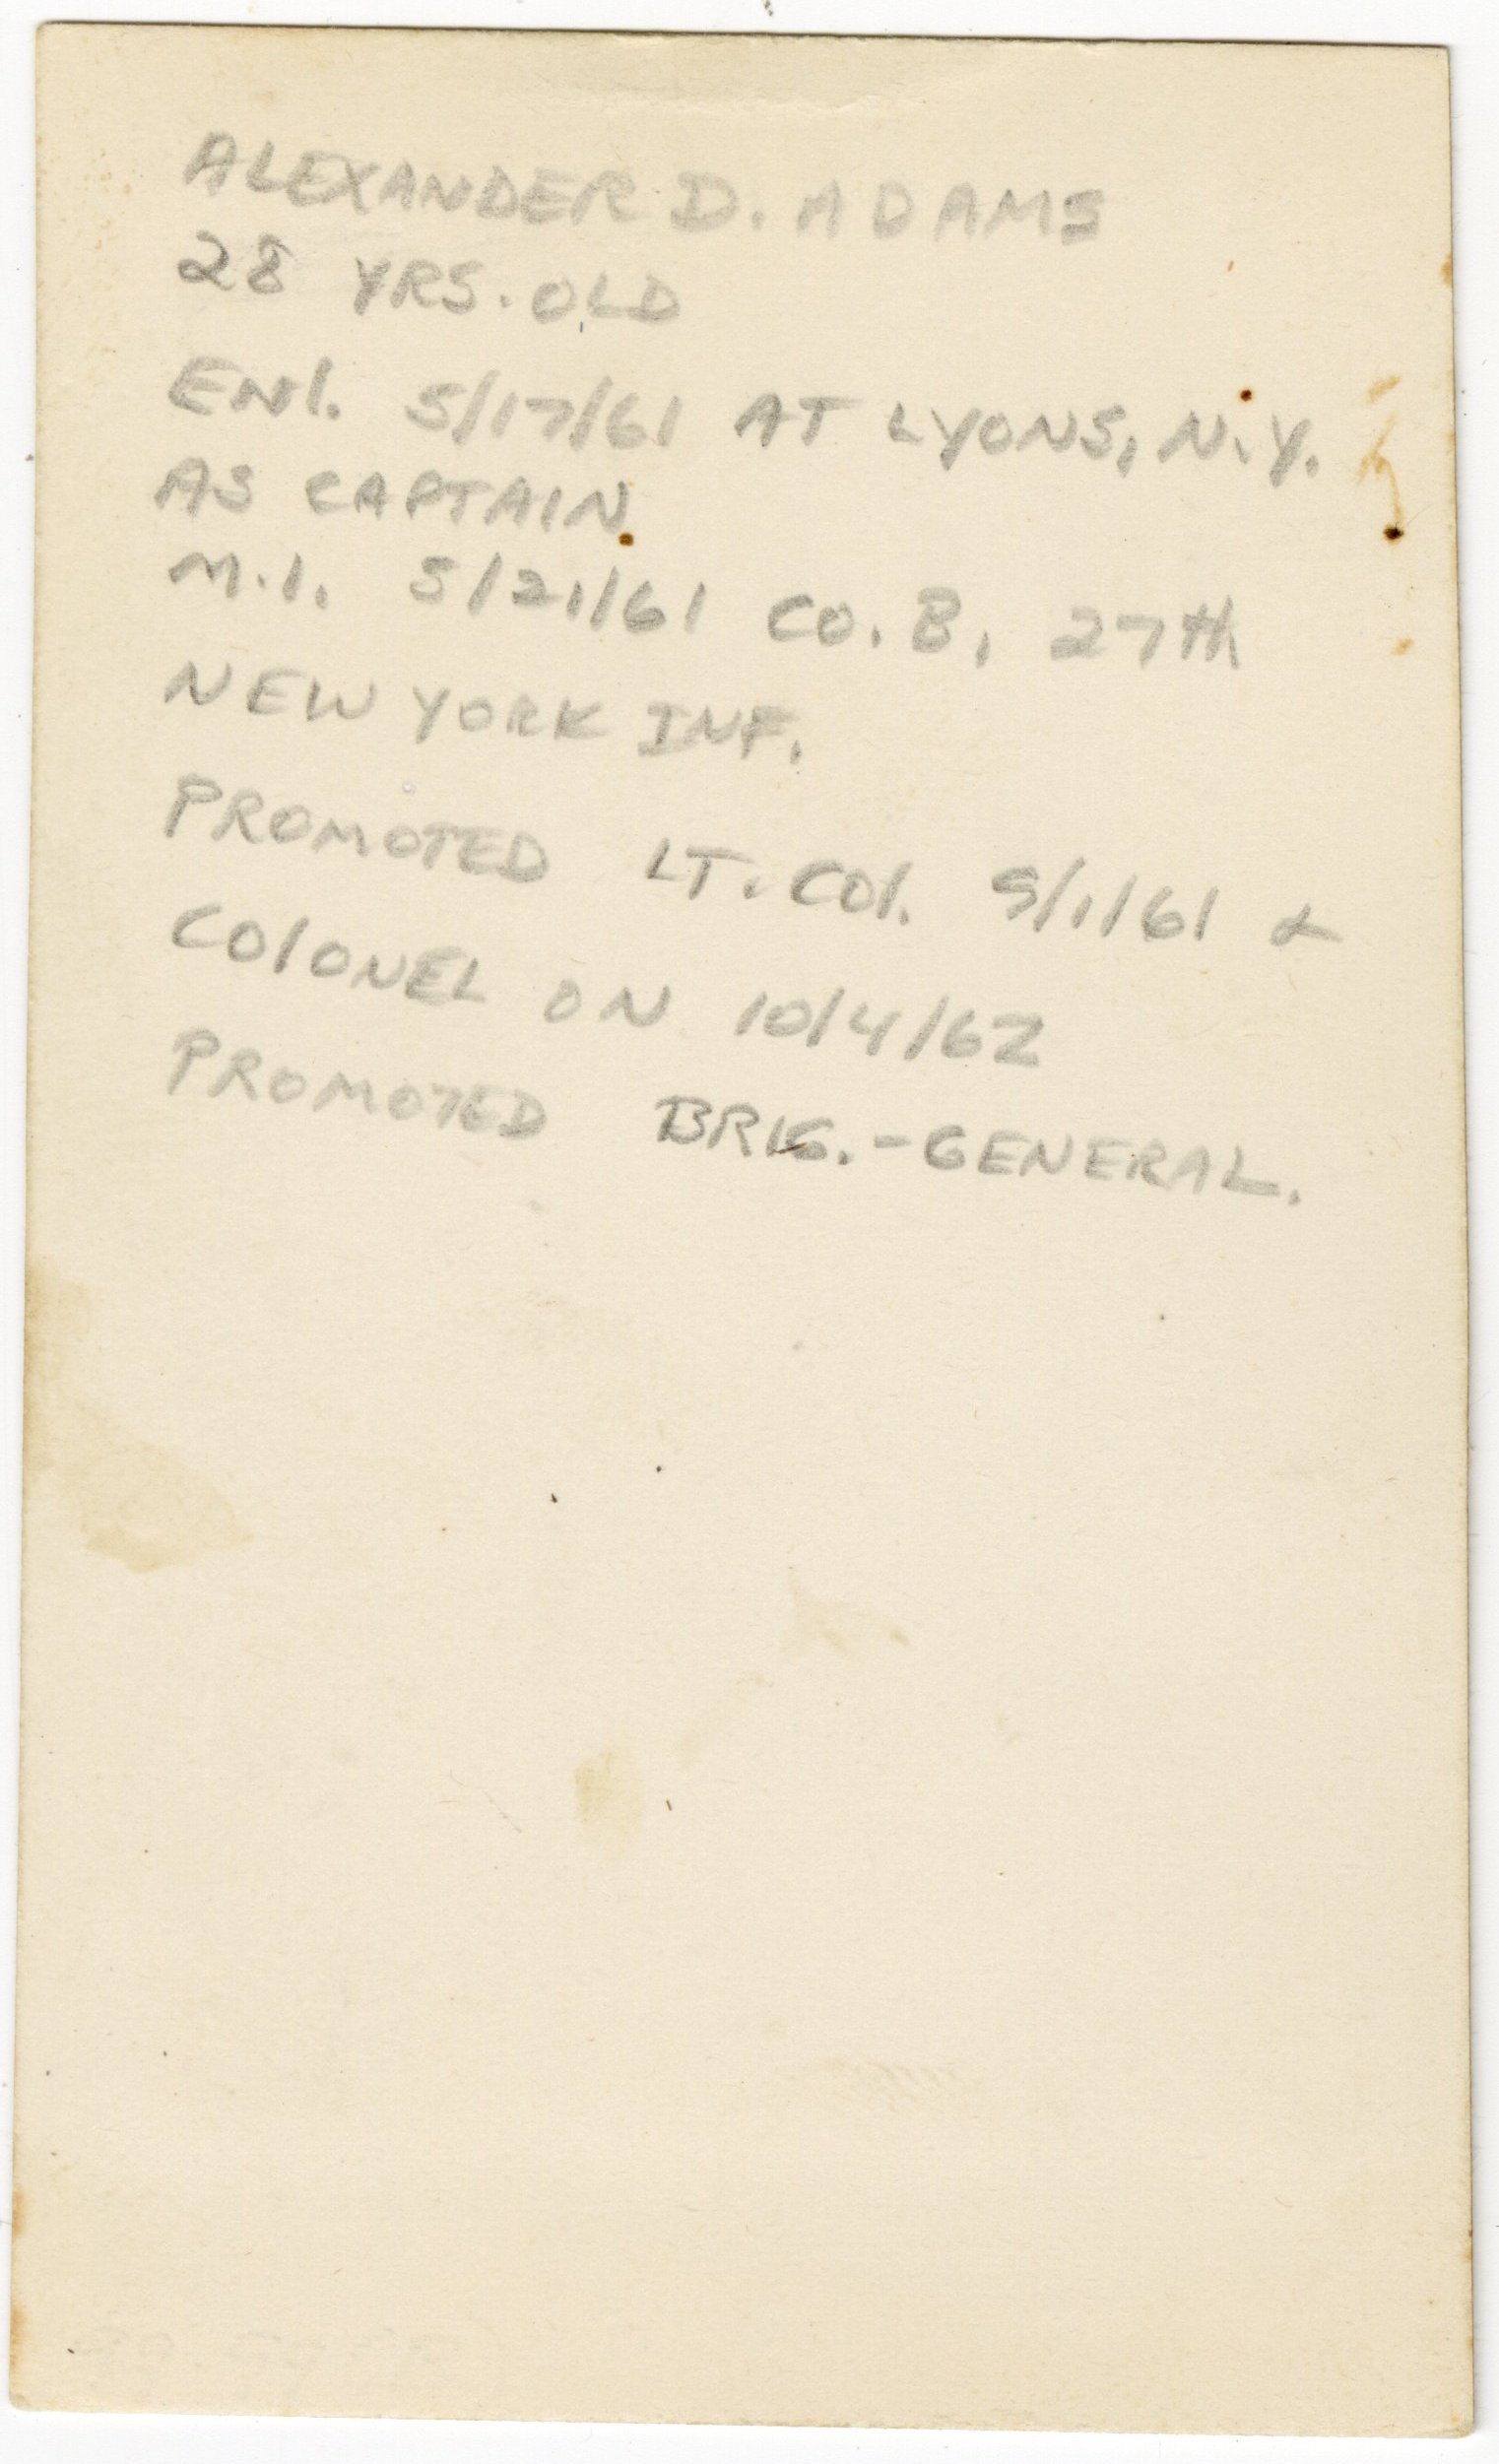 ALEXANDER D. ADAMS
28 YRS. OLD
ENl. 5/17/61 AT LYONS, N.Y.
AS CAPTAIN
M.I. 5/21/61 CO. B, 27th
NEW YORK INF.
PROMOTED LT. COl. 9/1/61 &
COlONEL ON 10/4/62
PROMOTED BRIG.-GENERAL.